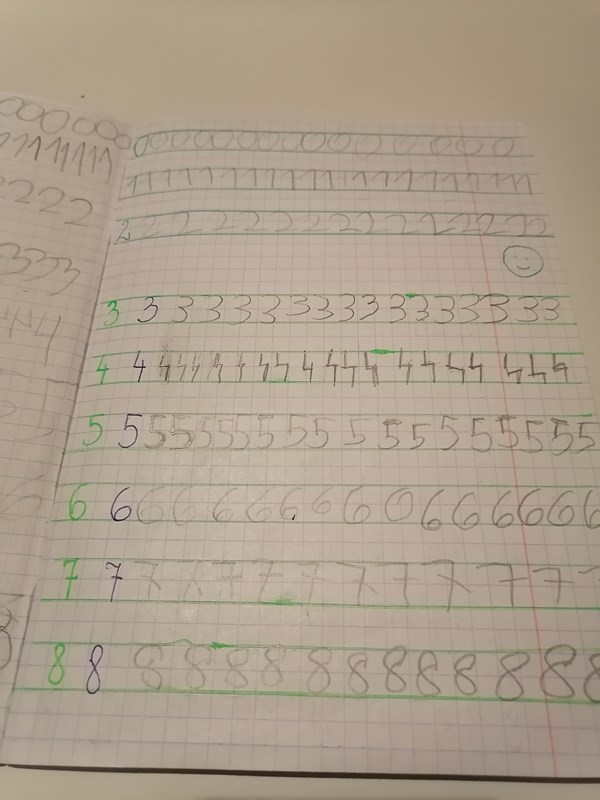 000000
11111111
222
333
4
000000000000000000
1111111111111111111111
2 2 2 2 2 2 2 2 2 2 2 2 2 2 2
3 3 3 3 3 3 3 3 3 3 3 3 3 3 3 3 3
4 4 4 4 4 4 4 4 4 4 4 4 4 4 4 4 4 4 4 4
5 5 5 5 5 5 5 5 5 5 5 5 5 5 5 5 5 5 5
6 6 6 6 6 6 6 6 6 0 6 6 6 6 6 6
7 7 7 7 7 7 7 7 7 7 7 7 7
8 8 8 8 8 8 8 8 8 8 8 8 8 8